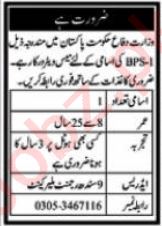 ضرورت ہے
وزارت دفاع حکومت پاکستان میں مندرجہ ذیل
BPS-1 کی اسامی کے لئے میس ویٹر درکار ہے۔
ضروری کاغذات کے ساتھ فوری رابطہ کریں۔
اسامی تعداد 1
عمر 8 سے 25 سال
تجربہ کسی بھی ہوٹل پر 3 سال کا
ہونا ضروری ہے
ایڈریس 9 سندھ رجمنٹ ملیر کینٹ
رابطہ نمبر 0305-3467116